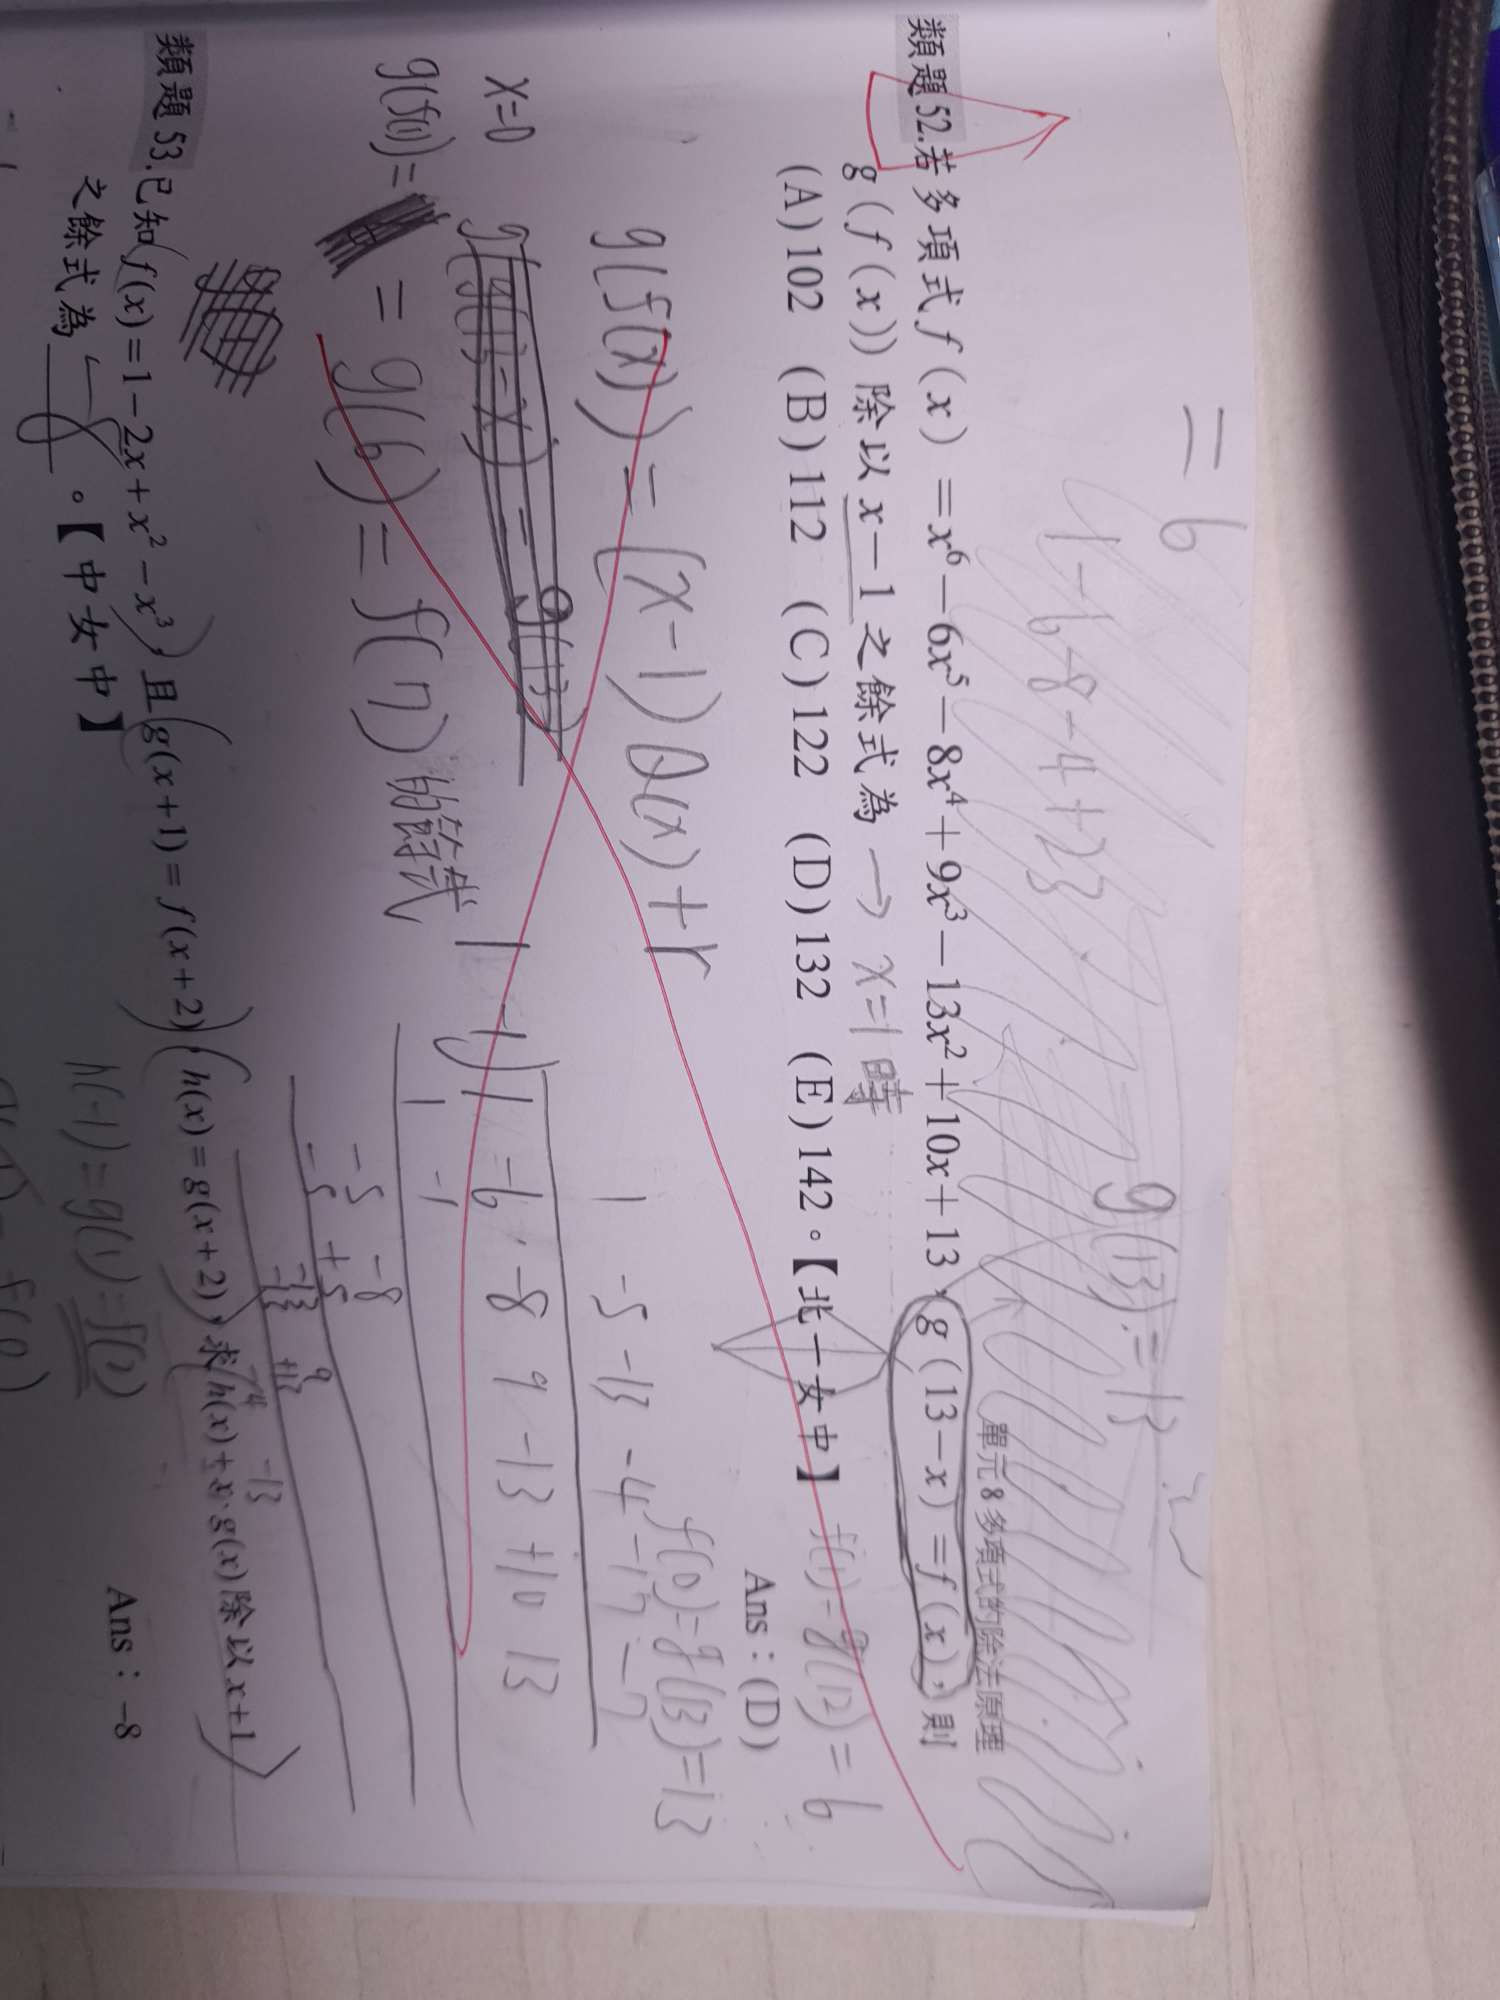 = 6
1-6-8-4+23
g(13)=13
單元8 多項式的除法原理
類題52.若多項式 f(x)=x⁶-6x⁵-8x⁴+9x³-13x²+10x+13，g(13-x)=f(x)，則
g(f(x))除以x-1之餘式為 → x=1時
(A)102 (B)112 (C)122 (D)132 (E)142。【北一女中】 f(1)=g(12)=6
Ans：(D)
f(0)=g(13)=13
g(f(x)) = (x-1)Q(x)+r
1 -5 -13 -4 -17 -7
x=0
1-1) 1 -6 -8 9 -13 +10 13
g(f(1))=
= g(6) = f(7)的餘式
1 -1
-5 -8
-5 +5
-13 9
-13 +13
-4 -13
類題53.已知f(x)=1-2x+x²-x³，且g(x+1)=f(x+2)，h(x)=g(x+2)，求h(x)+x·g(x)除以x+1
之餘式為＿＿＿。【中女中】
Ans：-8
h(-1)=g(1)=f(2)